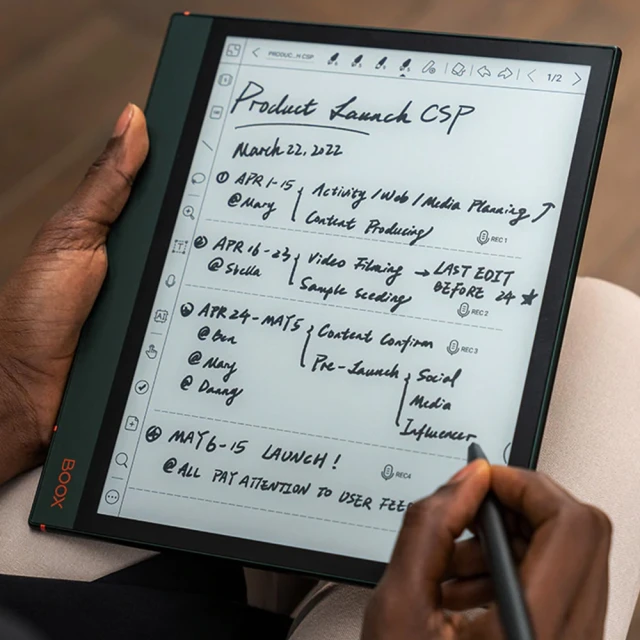 PRODUC...N CSP
1/2
Product Launch CSP
March 22, 2022
① APR 1-15 Activity / Web / Media Planning
@Mary Content Producing
REC 1
② APR 16-23 Video Filming → LAST EDIT
BEFORE 24 ★
@Stella Sample Seeding
REC 2
③ APR 24 - MAY 5 Content Confirm
REC 3
@Ben Pre-Launch Social
@Mary Media
@Danny Influencer
④ MAY 6-15 LAUNCH!
REC4
@ALL PAY ATTENTION TO USER FEE
BOOX